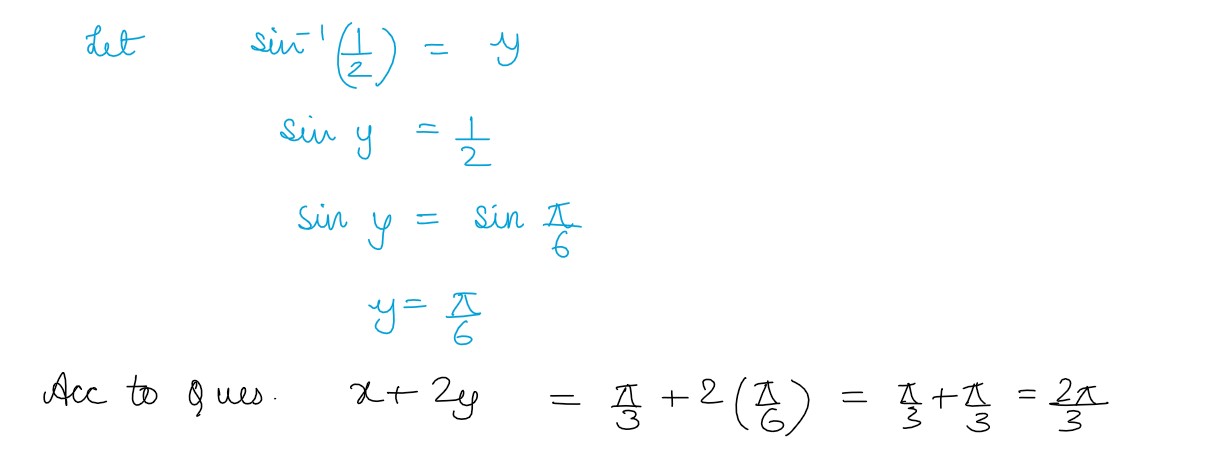 Let sin⁻¹(1/2) = y
sin y = 1/2
sin y = sin π/6
y = π/6
Acc to Ques. x + 2y = π/3 + 2(π/6) = π/3 + π/3 = 2π/3